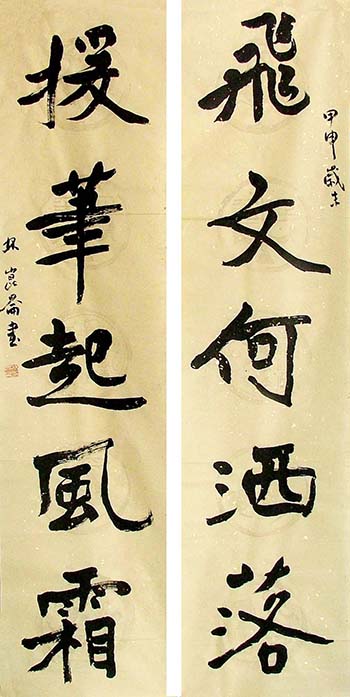 飛文何洒落
甲申歲末
援筆起風霜
林崑崙書